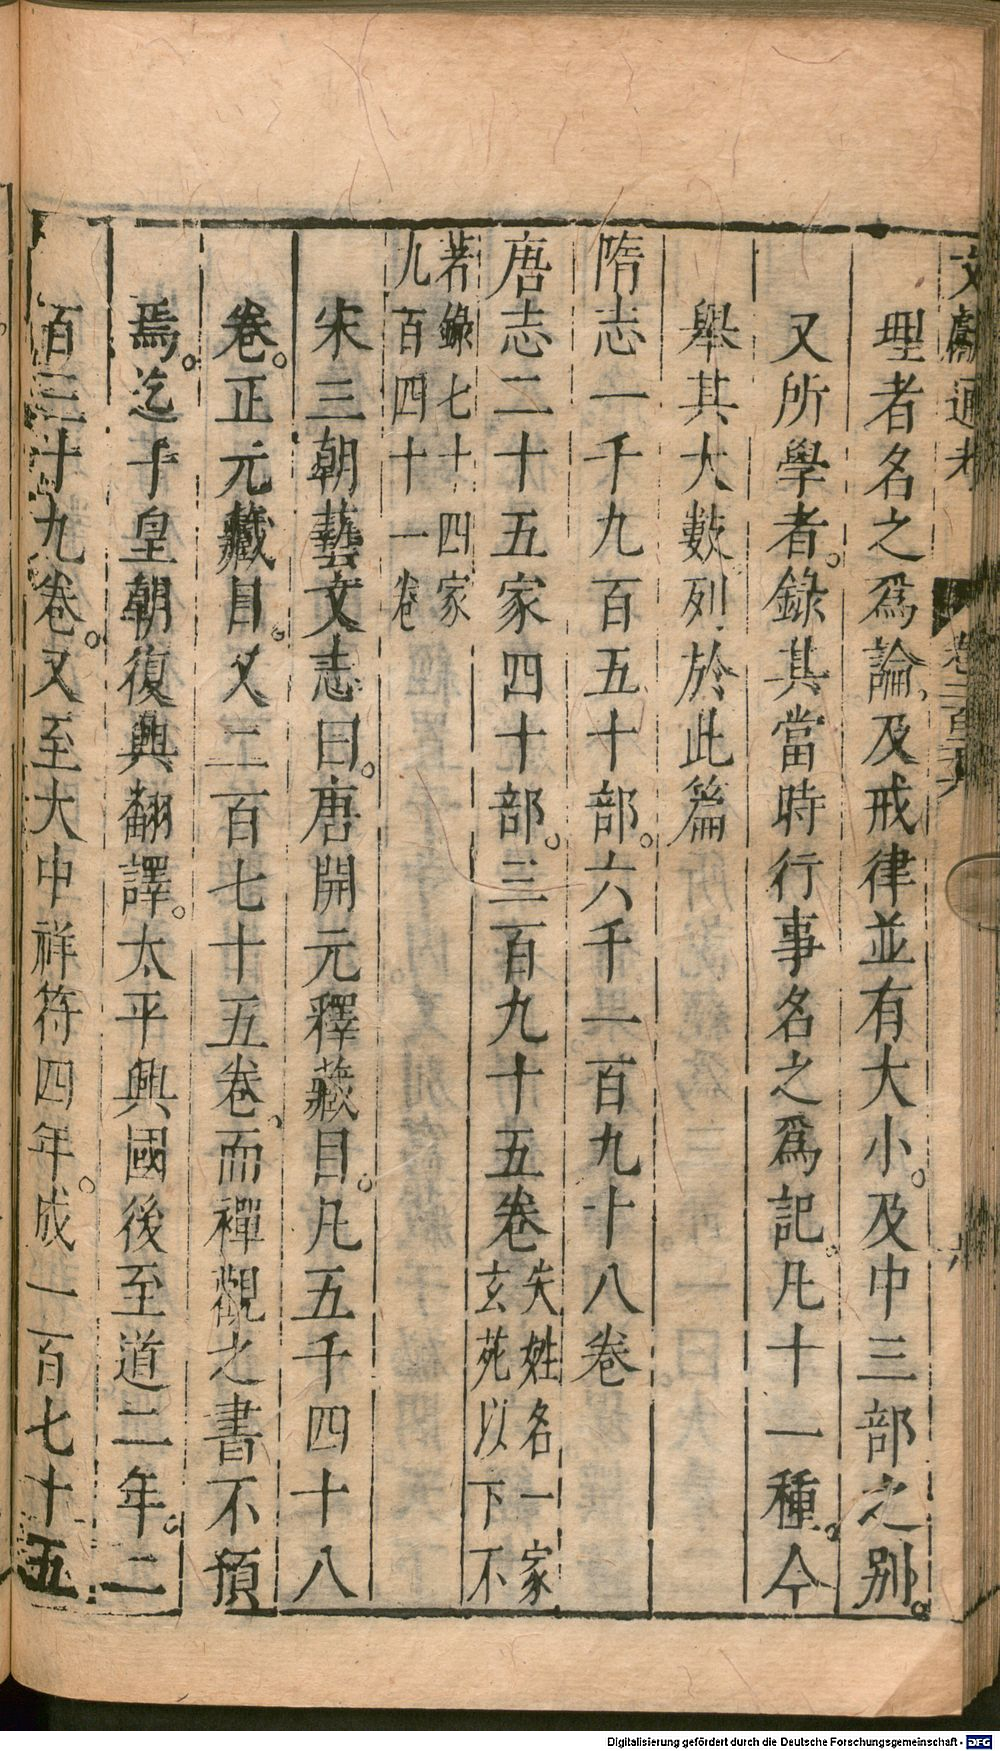 文獻通考　卷二百二十六　六
理者名之爲論及戒律並有大小。及中三部之别。
又所學者。錄其當時行事名之爲記。凡十一種。今
舉其大數列於此篇
隋志一千九百五十部。六千一百九十八卷
唐志二十五家四十部。三百九十五卷失姓名一家
玄苑以下不
著錄七十四家
九百四十一卷
宋三朝藝文志曰。唐開元釋藏目。凡五千四十八
卷。正元藏目。又二百七十五卷、而禪觀之書不預
焉。迄于皇朝復興翻譯。太平興國後至道二年。二
百三十九卷。又至大中祥符四年。成一百七十五
Digitalisierung gefördert durch die Deutsche Forschungsgemeinschaft - DFG